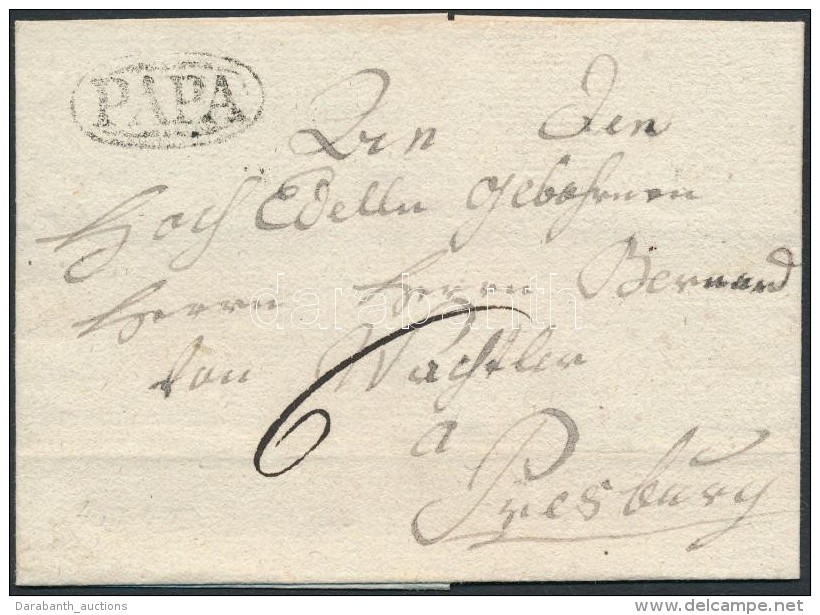 PAPA
An den
Hoch Edelln gebohrnen
Herrn Herrn Bernard
von Wachtler
6
a
Presburg
darabanth
Darabanth_auctions
postzegelverzamelen.be